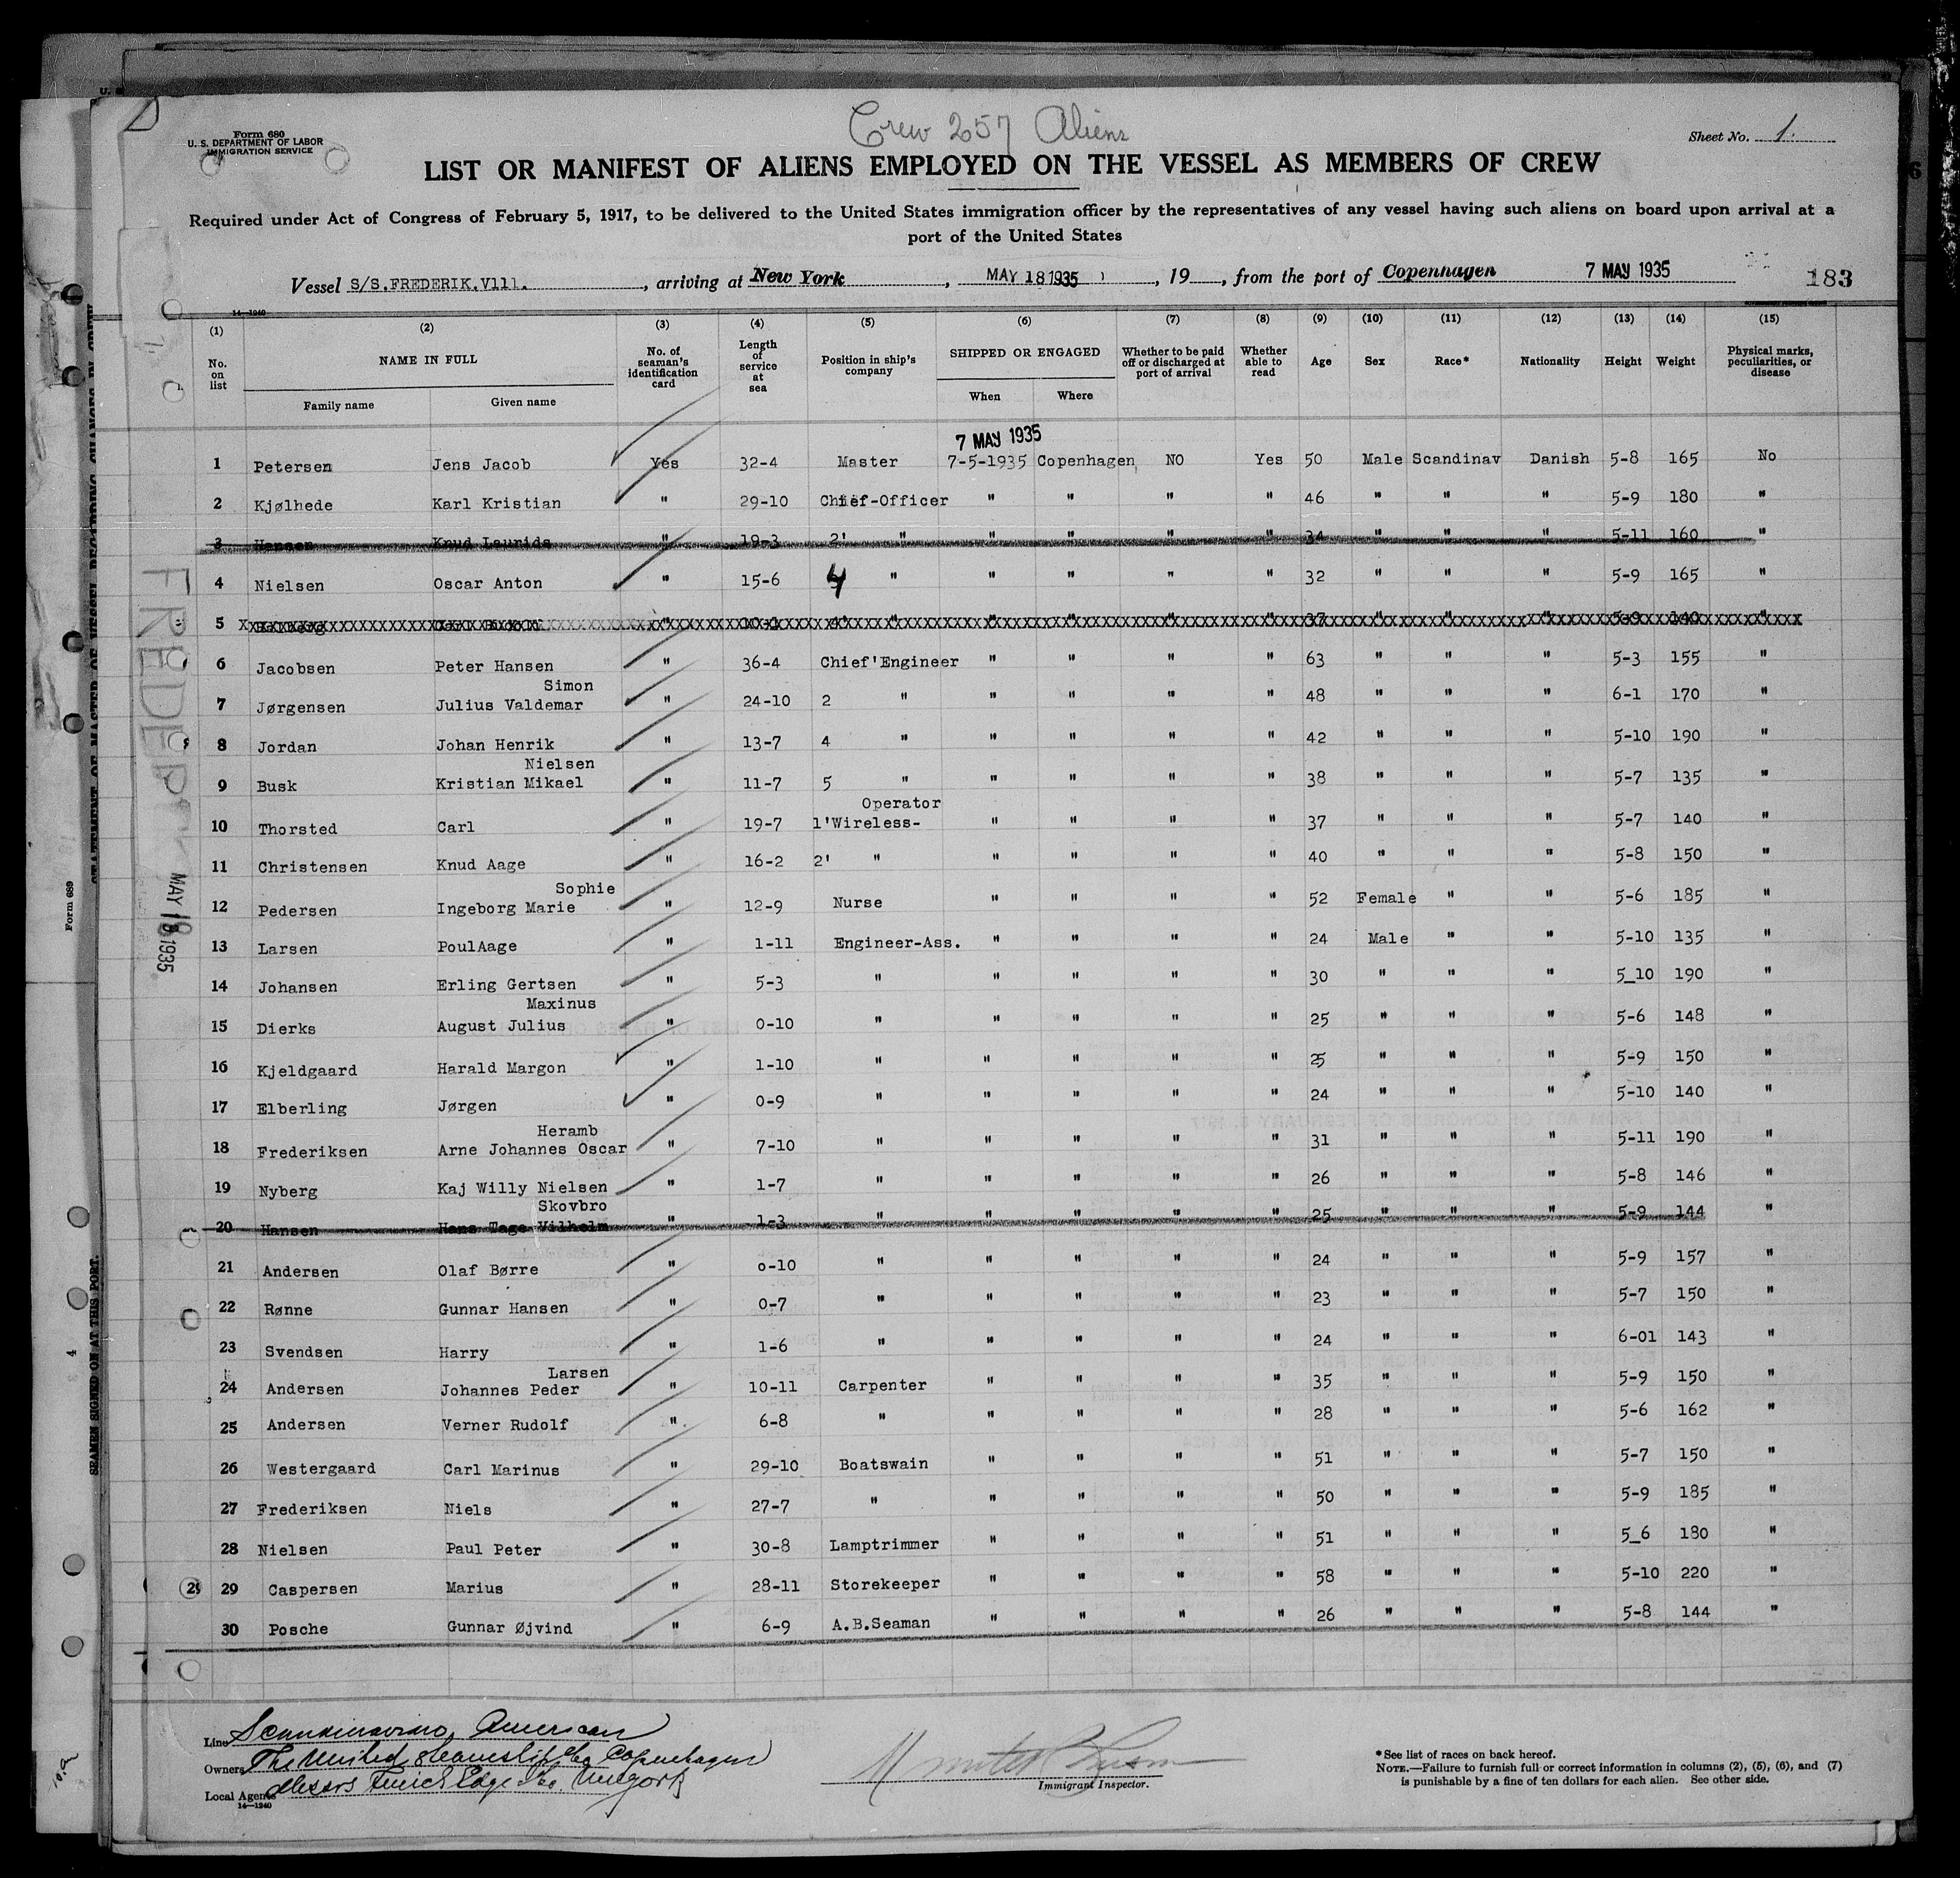 Crew 257 Aliens
Form 680
U. S. DEPARTMENT OF LABOR
IMMIGRATION SERVICE
Sheet No. 1.
LIST OR MANIFEST OF ALIENS EMPLOYED ON THE VESSEL AS MEMBERS OF CREW
Required under Act of Congress of February 5, 1917, to be delivered to the United States immigration officer by the representatives of any vessel having such aliens on board upon arrival at a
port of the United States
Vessel S/S.FREDERIK.V111. , arriving at New York , MAY 18 1935 , 19 , from the port of Copenhagen 7 MAY 1935 183
14—1240
(1) (2) (3) (4) (5) (6) (7) (8) (9) (10) (11) (12) (13) (14) (15)
No. on list NAME IN FULL No. of seaman's identification card Length of service at sea Position in ship's company SHIPPED OR ENGAGED Whether to be paid off or discharged at port of arrival Whether able to read Age Sex Race* Nationality Height Weight Physical marks, peculiarities, or disease
Family name Given name When Where
7 MAY 1935
1 Petersen Jens Jacob Yes 32-4 Master 7-5-1935 Copenhagen NO Yes 50 Male Scandinav Danish 5-8 165 No
2 Kjølhede Karl Kristian " 29-10 Chief-Officer " " " " 46 " " " 5-9 180 "
3 Hansen Knud Laurids " 19-3 2' " " " " " 34 " " " 5-11 160 "
4 Nielsen Oscar Anton " 15-6 4 " " " " " 32 " " " 5-9 165 "
5 " 4' " " " " " 37 " " " 5-9 140 "
6 Jacobsen Peter Hansen " 36-4 Chief'Engineer " " " " 63 " " " 5-3 155 "
Simon
7 Jørgensen Julius Valdemar " 24-10 2 " " " " " 48 " " " 6-1 170 "
8 Jordan Johan Henrik " 13-7 4 " " " " " 42 " " " 5-10 190 "
Nielsen
9 Busk Kristian Mikael " 11-7 5 " " " " " 38 " " " 5-7 135 "
Operator
10 Thorsted Carl " 19-7 1'Wireless- " " " " 37 " " " 5-7 140 "
11 Christensen Knud Aage " 16-2 2' " " " " " 40 " " " 5-8 150 "
Sophie
12 Pedersen Ingeborg Marie " 12-9 Nurse " " " " 52 Female " " 5-6 185 "
13 Larsen PoulAage " 1-11 Engineer-Ass. " " " " 24 Male " " 5-10 135 "
14 Johansen Erling Gertsen " 5-3 " " " " " 30 " " " 5_10 190 "
Maxinus
15 Dierks August Julius " 0-10 " " " " " 25 " " " 5-6 148 "
16 Kjeldgaard Harald Margon " 1-10 " " " " " 25 " " " 5-9 150 "
17 Elberling Jørgen " 0-9 " " " " " 24 " " " 5-10 140 "
Heramb
18 Frederiksen Arne Johannes Oscar " 7-10 " " " " " 31 " " " 5-11 190 "
19 Nyberg Kaj Willy Nielsen " 1-7 " " " " " 26 " " " 5-8 146 "
Skovbro
20 Hansen Hans Tage Vilhelm " 1-3 " " " " " 25 " " " 5-9 144 "
21 Andersen Olaf Børre " o-10 " " " " " 24 " " " 5-9 157 "
22 Rønne Gunnar Hansen " 0-7 " " " " " 23 " " " 5-7 150 "
23 Svendsen Harry " 1-6 " " " " " 24 " " " 6-01 143 "
Larsen
24 Andersen Johannes Peder " 10-11 Carpenter " " " " 35 " " " 5-9 150 "
25 Andersen Verner Rudolf " 6-8 " " " " " 28 " " " 5-6 162 "
26 Westergaard Carl Marinus " 29-10 Boatswain " " " " 51 " " " 5-7 150 "
27 Frederiksen Niels " 27-7 " " " " " 50 " " " 5-9 185 "
28 Nielsen Paul Peter " 30-8 Lamptrimmer " " " " 51 " " " 5_6 180 "
29 Caspersen Marius " 28-11 Storekeeper " " " " 58 " " " 5-10 220 "
30 Posche Gunnar Øjvind " 6-9 A.B.Seaman " " " " 26 " " " 5-8 144 "
Line Scandinavian American
Owners The United Steamship Co Copenhagen
Local Agents Messrs Edge Co. New York
14—1240
Immigrant Inspector.
*See list of races on back hereof.
NOTE.—Failure to furnish full or correct information in columns (2), (5), (6), and (7)
is punishable by a fine of ten dollars for each alien. See other side.
FREDERIK
MAY 18 1935
Form 689
STATEMENT OF MASTER OF VESSEL REGARDING CHANGES IN CREW
SEAMEN SIGNED ON AT THIS PORT.